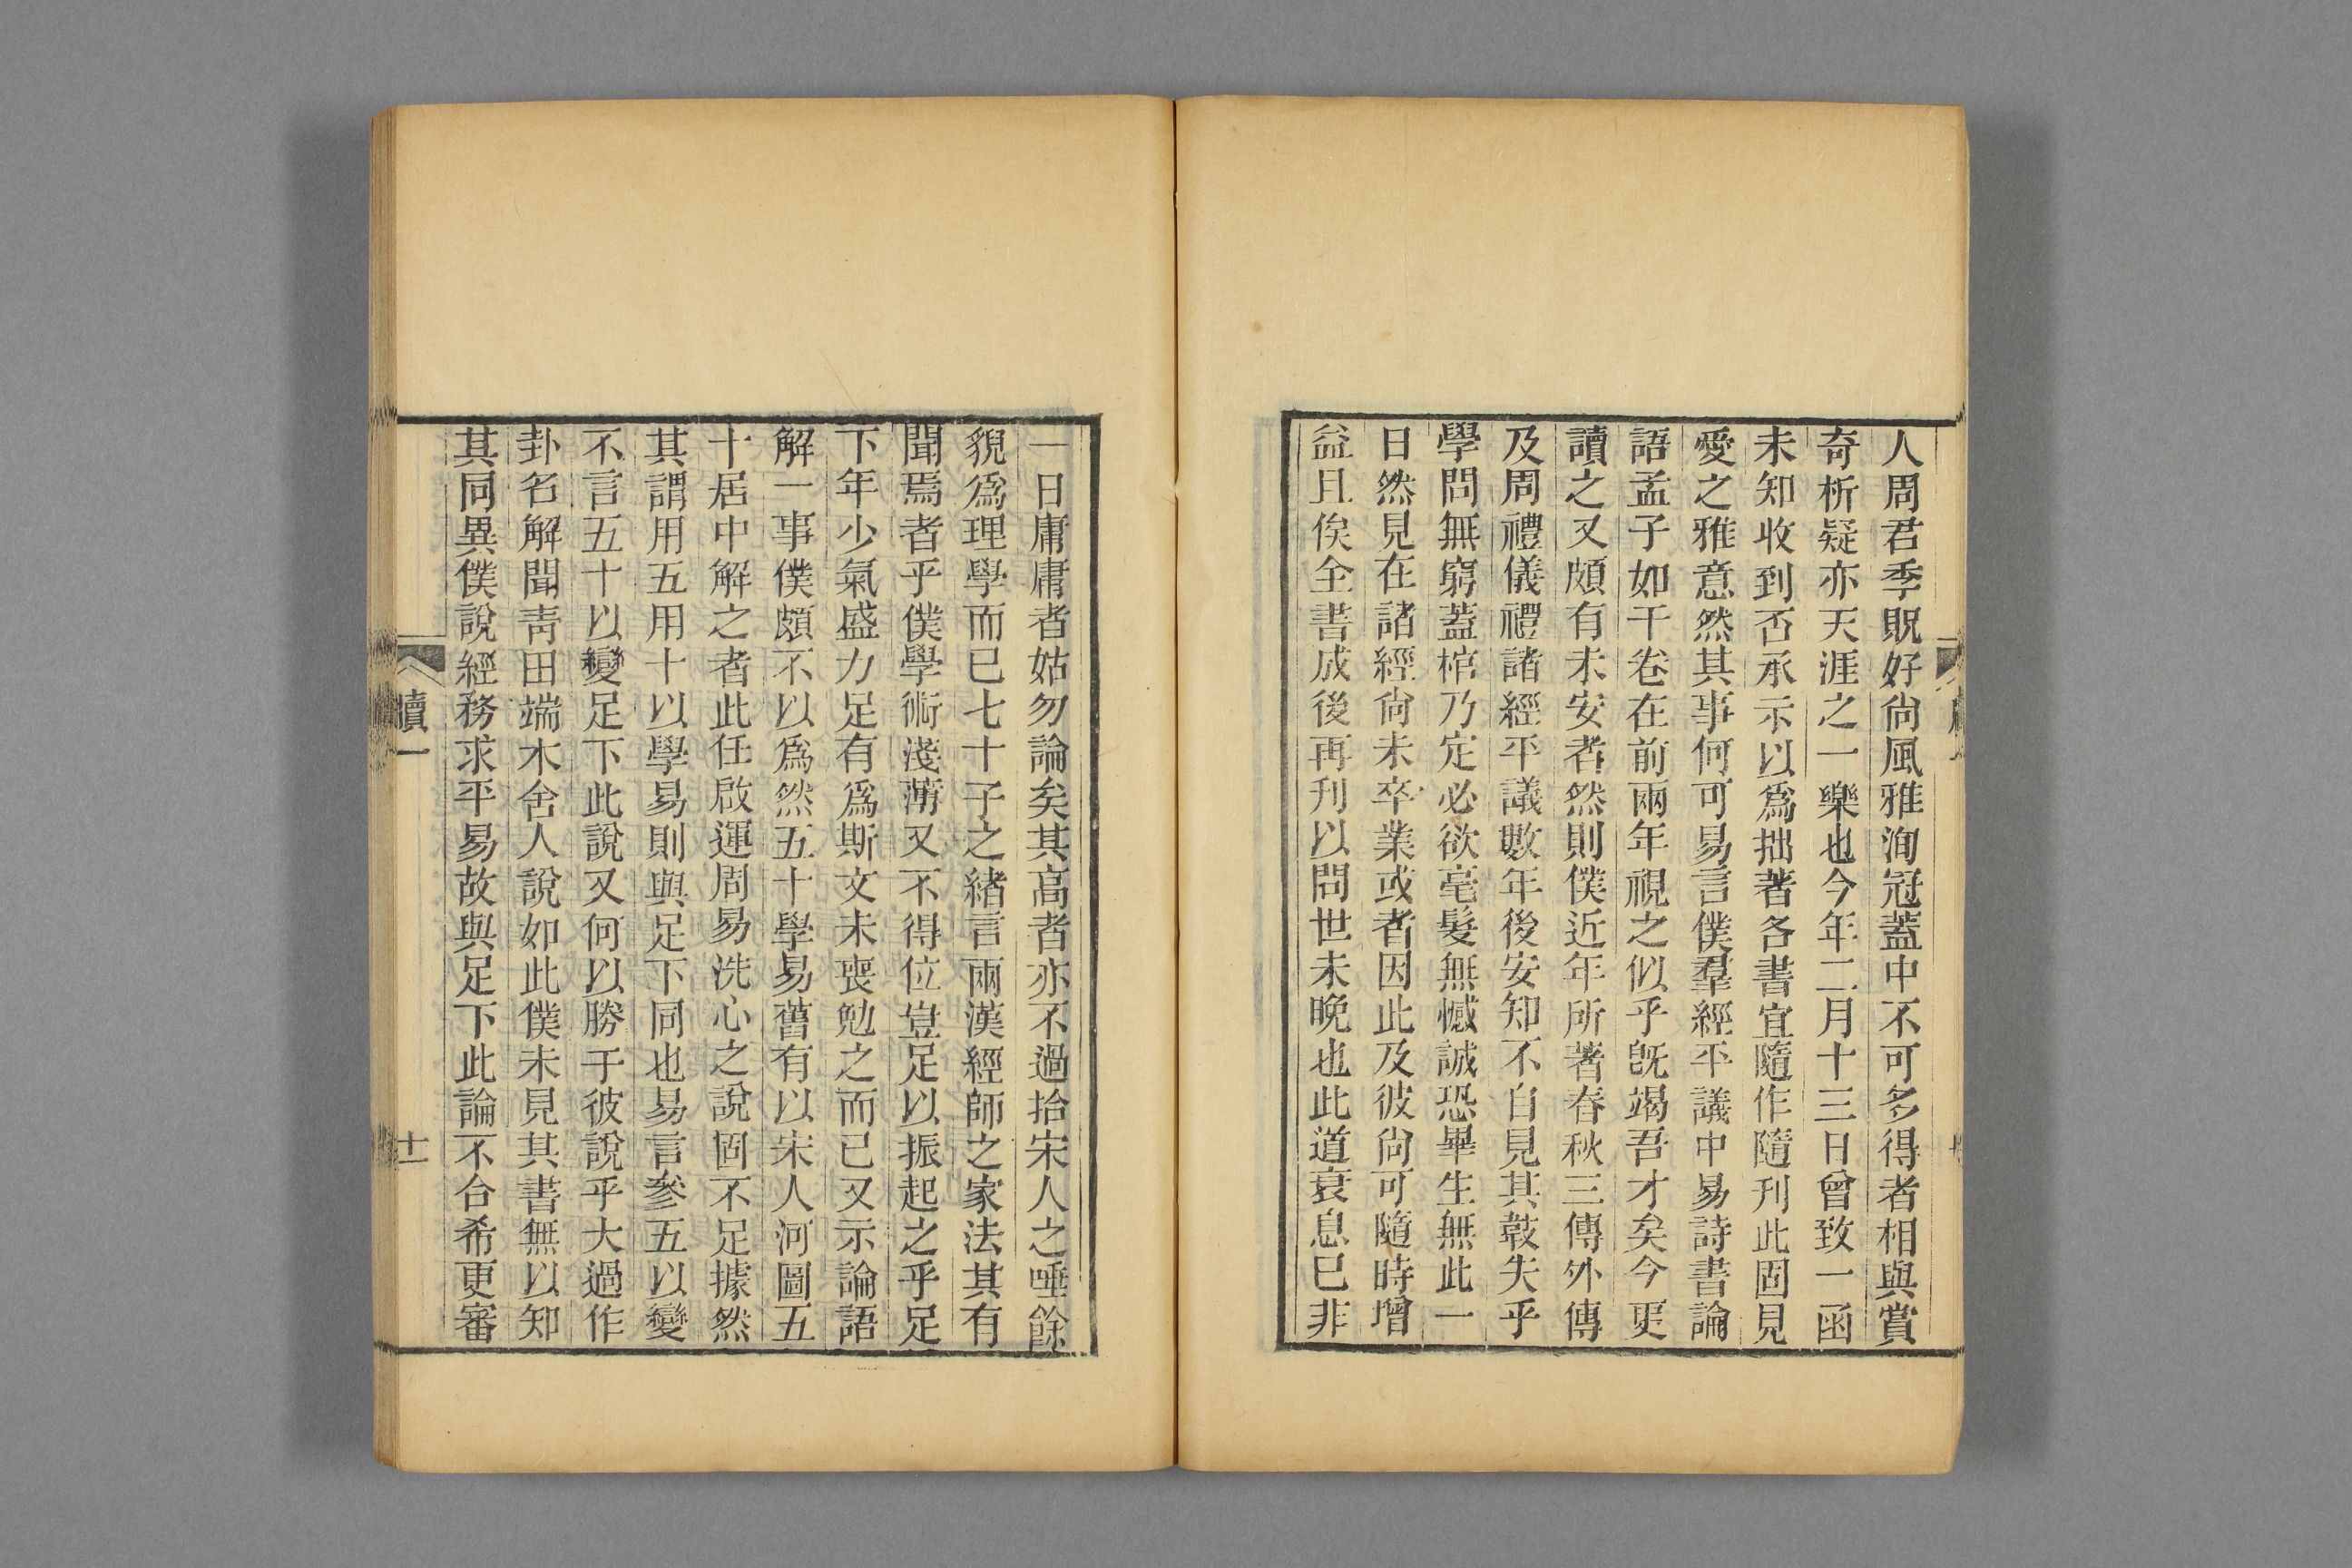 人周君季貺好尙風雅洵冠蓋中不可多得者相與賞
奇析疑亦天涯之一樂也今年二月十三日曾致一函
未知收到否承示以爲拙著各書宜隨作隨刋此固見
愛之雅意然其事何可易言僕羣經平議中易詩書論
語孟子如干卷在前兩年視之似乎旣竭吾才矣今更
讀之又頗有未安者然則僕近年所著春秋三傳外傳
及周禮儀禮諸經平議數年後安知不自見其敼失乎
學問無窮蓋棺乃定必欲毫髮無憾誠恐畢生無此一
日然見在諸經尙未卒業或者因此及彼尙可隨時增
益且俟全書成後再刋以問世未晚也此道衰息已非
一日庸庸者姑勿論矣其高者亦不過拾宋人之唾餘
貌爲理學而已七十子之緒言兩漢經師之家法其有
聞焉者乎僕學術淺薄又不得位豈足以振起之乎足
下年少氣盛力足有爲斯文未喪勉之而已又示論語
解一事僕頗不以爲然五十學易舊有以宋人河圖五
十居中解之者此任啟運周易洗心之說固不足據然
其謂用五用十以學易則與足下同也易言參五以變
不言五十以變足下此說又何以勝于彼說乎大過作
卦名解聞靑田端木舍人說如此僕未見其書無以知
其同異僕說經務求平易故與足下此論不合希更審
牘一
十一